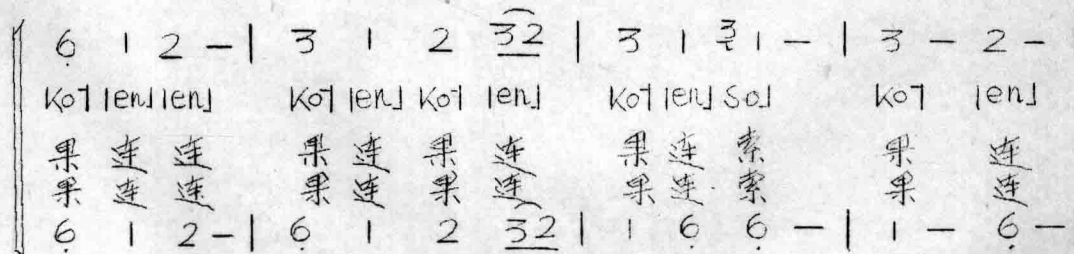 6̣ 1 2 - | 3 1 2 3̲2̲ | 3 1 ³1 - | 3 - 2 -
ko˥ len˩ len˩ ko˥ len˩ ko˥ len˩ ko˥ len˩ so˩ ko˥ len˩
果 连 连 果 连 果 连 果 连 索 果 连
果 连 连 果 连 果 连 果 连 索 果 连
6̣ 1 2 - | 6̣ 1 2 3̲2̲ | 1 6̣ 6̣ - | 1 - 6̣ -